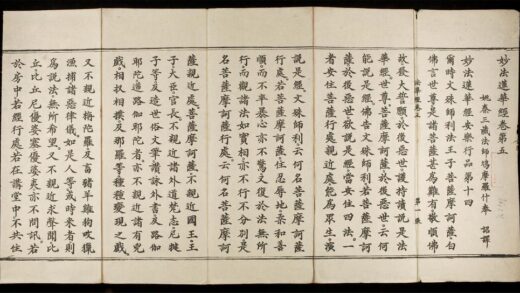 妙法蓮華經卷第五
姚秦三藏法師鳩摩羅什奉 詔譯
妙法蓮華經安樂行品第十四
爾時文殊師利法王子菩薩摩訶薩白
佛言世尊是諸菩薩甚為難有敬順佛
法華經卷五 第一張
故發大誓願於後惡世護持讀說是法
華經世尊菩薩摩訶薩於後惡世云何
能說是經佛告文殊師利若菩薩摩訶
薩於後惡世欲說是經當安住四法一
者安住菩薩行處親近處能為眾生演
說是經文殊師利云何名菩薩摩訶薩
行處若菩薩摩訶薩住忍辱地柔和善
順而不卒暴心亦不驚又復於法無所
行而觀諸法如實相亦不行不分別是
名菩薩摩訶薩行處云何名菩薩摩訶
薩親近處菩薩摩訶薩不親近國王王
子大臣官長不親近諸外道梵志尼揵
子等及造世俗文筆讚詠外書及路伽
耶陀逆路伽耶陀者亦不親近諸有兇
戲相扠相撲及那羅等種種變現之戲
又不親近旃陀羅及畜猪羊雞狗畋獵
漁捕諸惡律儀如是人等或時來者則
為說法無所希望又不親近求聲聞比
丘比丘尼優婆塞優婆夷亦不問訊若
於房中若經行處若在講堂中不共住